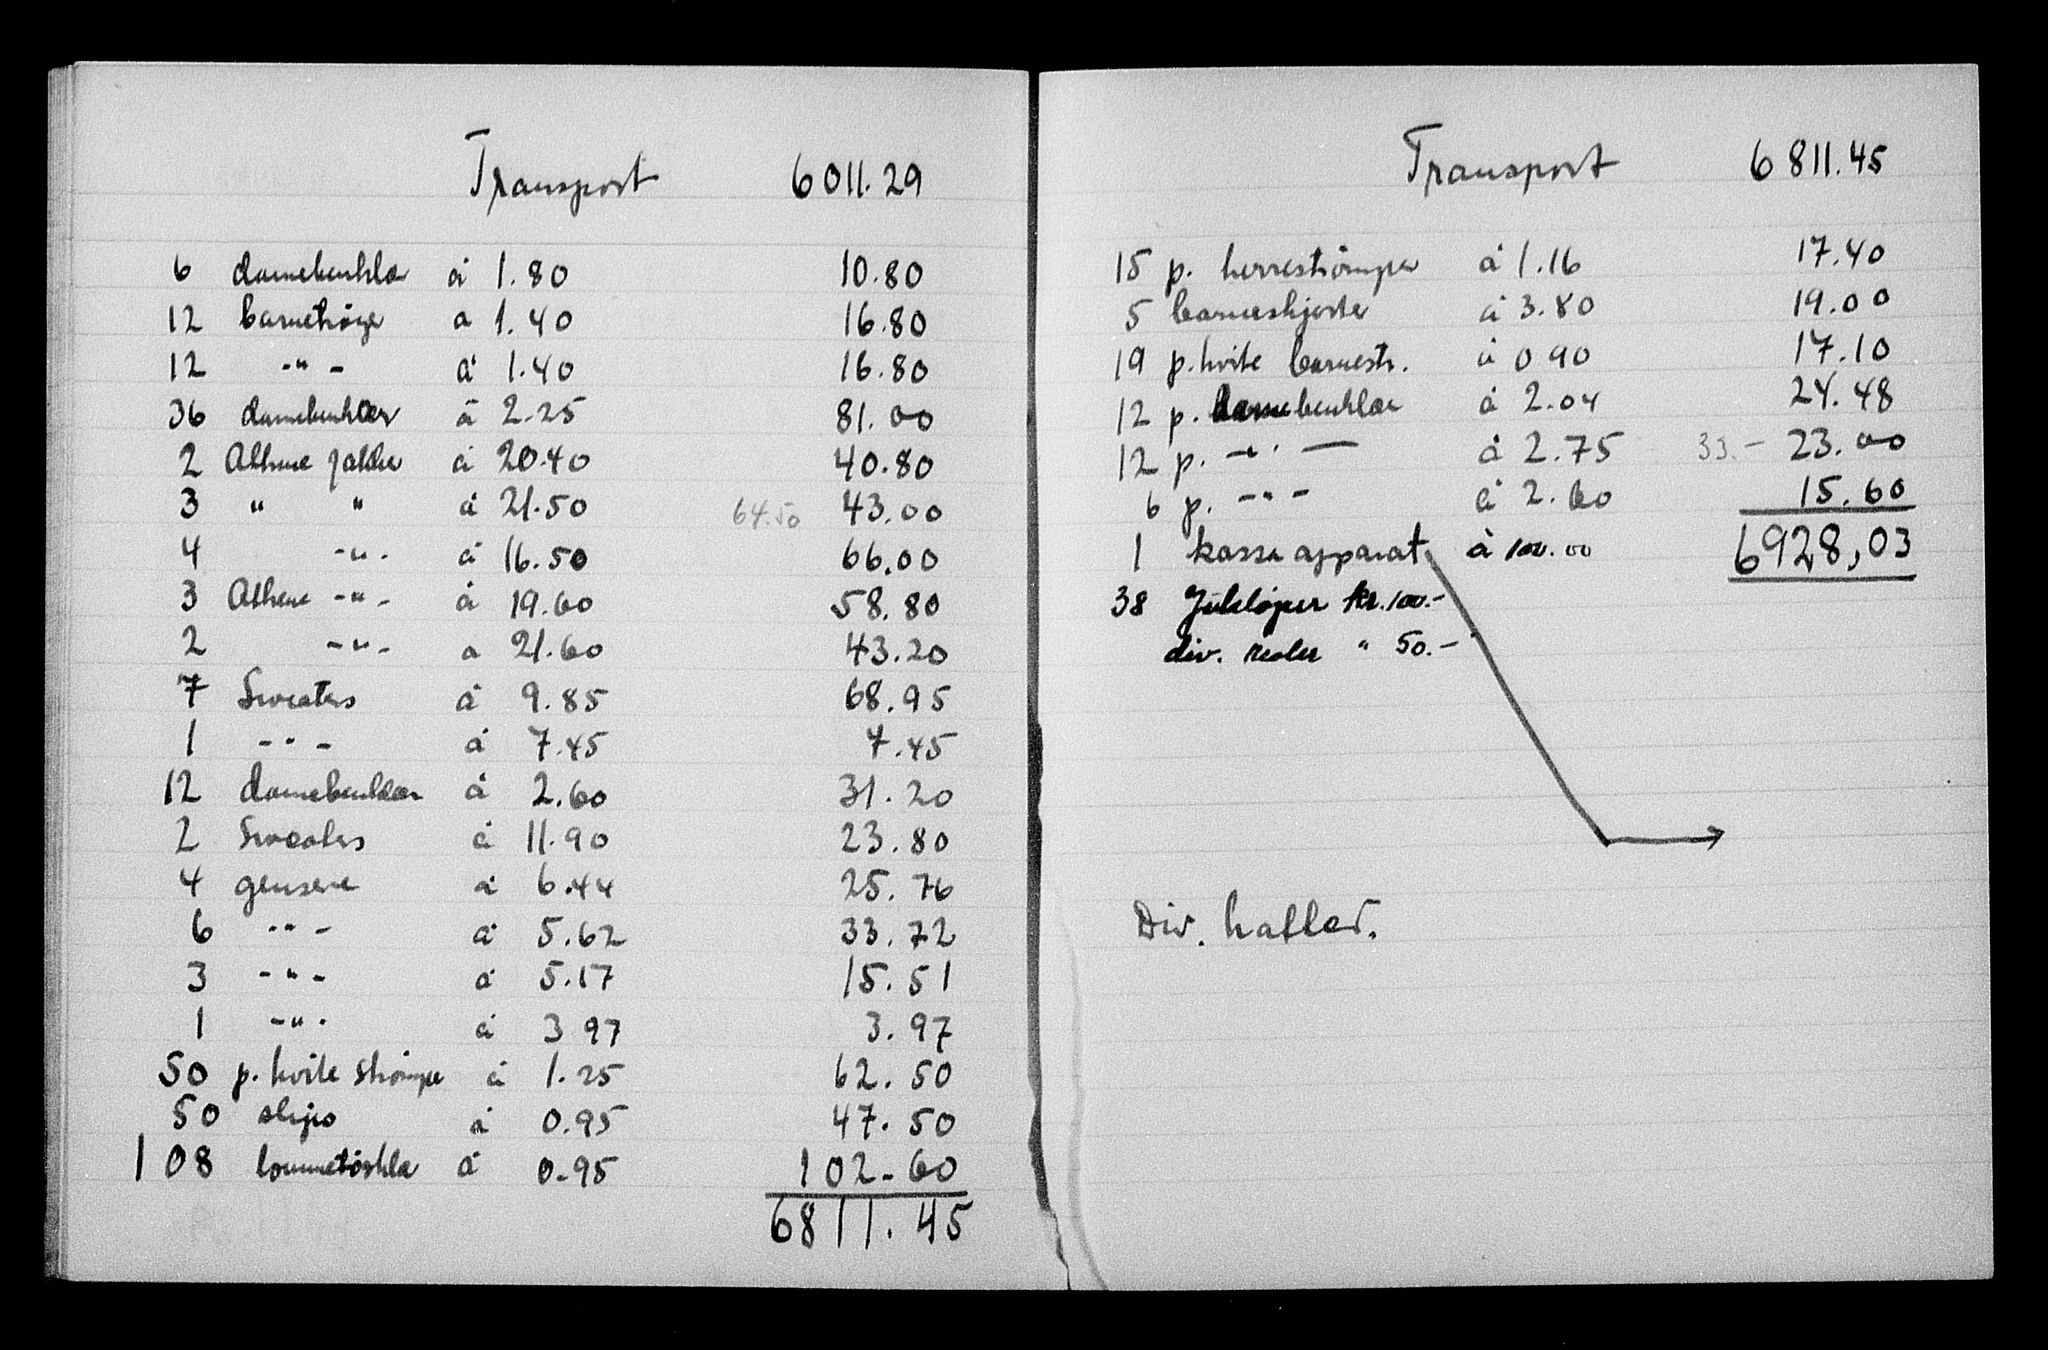 Transport 6011.29
6 damebenklæ à 1.80 10.80
12 barnetrøye a 1.40 16.80
12 -"- à 1.40 16.80
36 damebenklær à 2.25 81.00
2 Athene jakke à 20.40 40.80
3 " " à 21.50 64.50 43.00
4 -"- à 16.50 66.00
3 Athene -"- à 19.60 58.80
2 -"- a 21.60 43.20
7 Sweaters à 9.85 68.95
1 -"- à 7.45 7.45
12 damebenklær à 2.60 31.20
2 Sweaters à 11.90 23.80
4 gensere à 6.44 25.76
6 -"- à 5.62 33.72
3 -"- à 5.17 15.51
1 -"- à 3 97 3.97
50 p. hvite strømpe à 1.25 62.50
50 slips à 0.95 47.50
108 lommetørkla à 0.95 102.60
6811.45
Transport 6811.45
15 p. herrestrømper à 1.16 17.40
5 barneskjorter à 3.80 19.00
19 p. hvite barnestr. à 0 90 17.10
12 p. damebenklær à 2.04 24.48
12 p. -"- à 2.75 33.- 23.00
6 p. -"- à 2.60 15.60
6928,03
1 kassaapparat à 100.00
38 Juleløper kr. 100.-
div. " 50.-
Div. hatter.